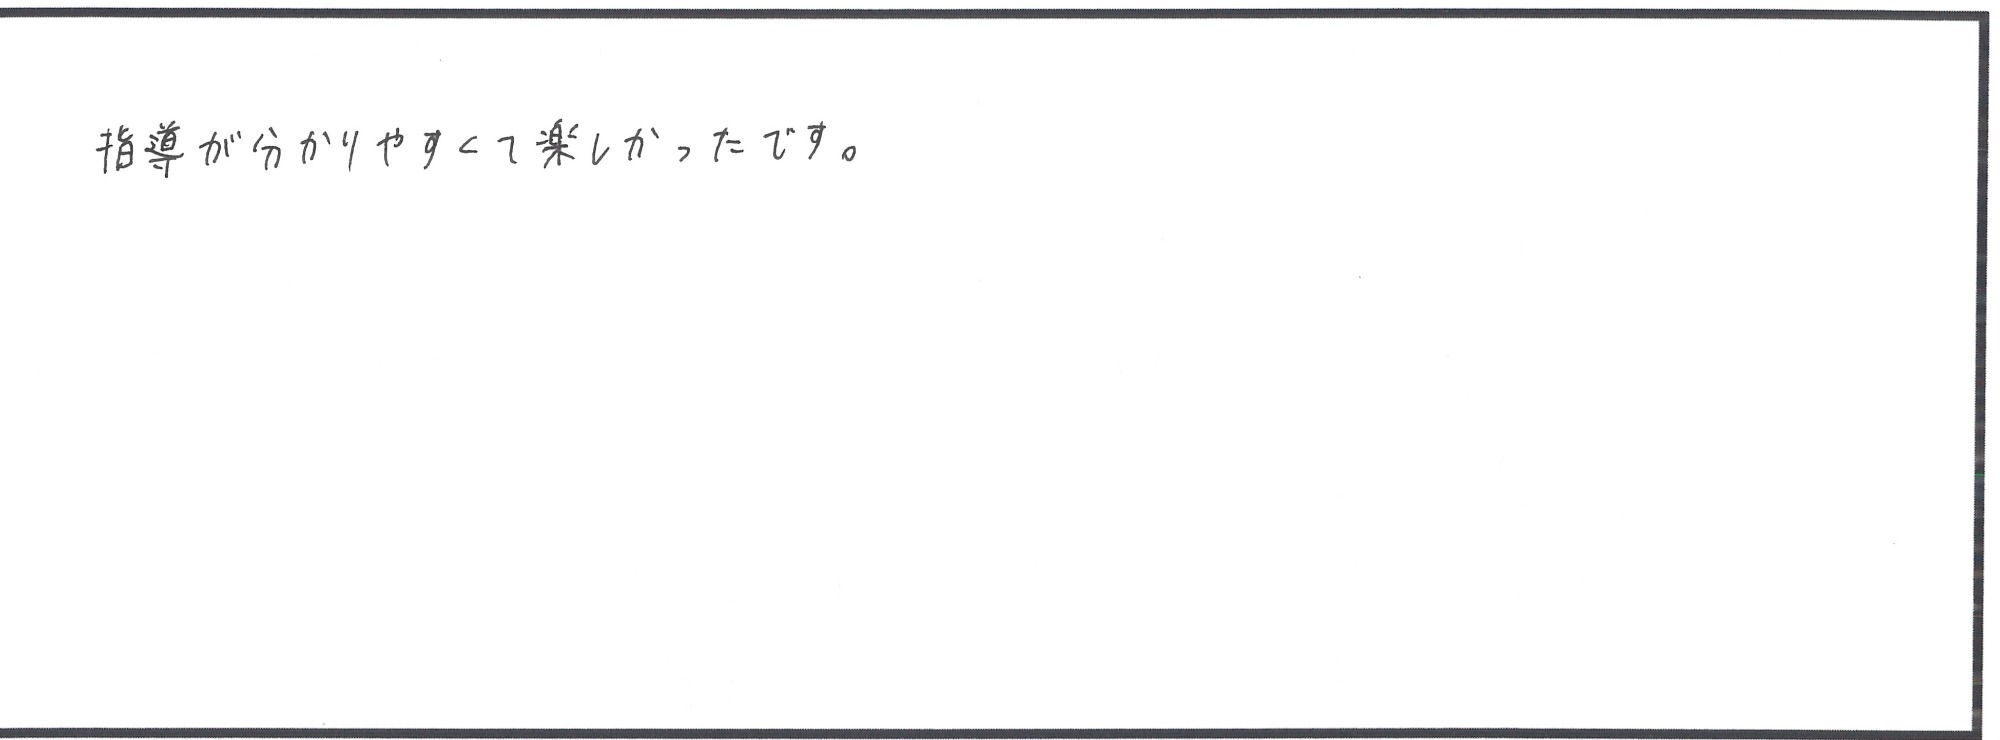 指導が分かりやすくて楽しかったです。